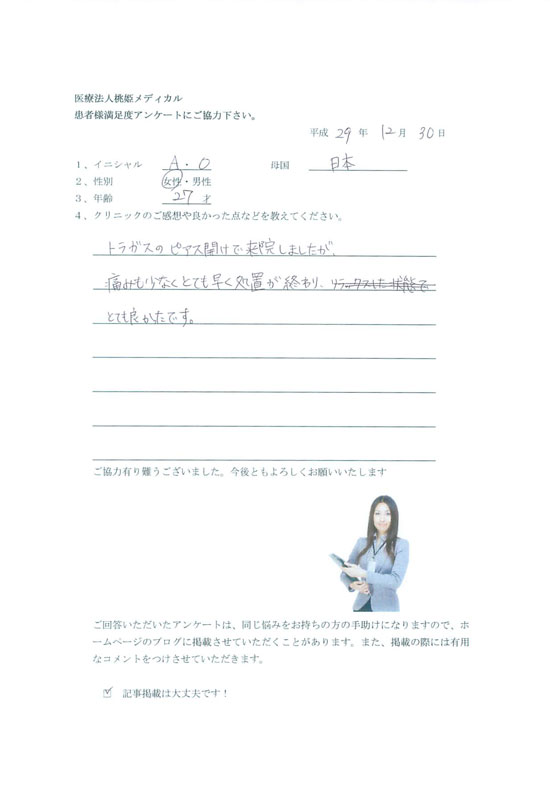 医療法人桃姫メディカル
患者様満足度アンケートにご協力下さい。
平成 29 年 12 月 30 日
1、イニシャル A・O 母国 日本
2、性別 女性・男性
3、年齢 27 才
4、クリニックのご感想や良かった点などを教えてください。
トラガスのピアス開けで来院しましたが、
痛みも少なくとても早く処置が終わり、リラックスした状態で
とても良かたです。
ご協力有り難うございました。今後ともよろしくお願いいたします
ご回答いただいたアンケートは、同じ悩みをお持ちの方の手助けになりますので、ホ
ームページのブログに掲載させていただくことがあります。また、掲載の際には有用
なコメントをつけさせていただきます。
☑ 記事掲載は大丈夫です!